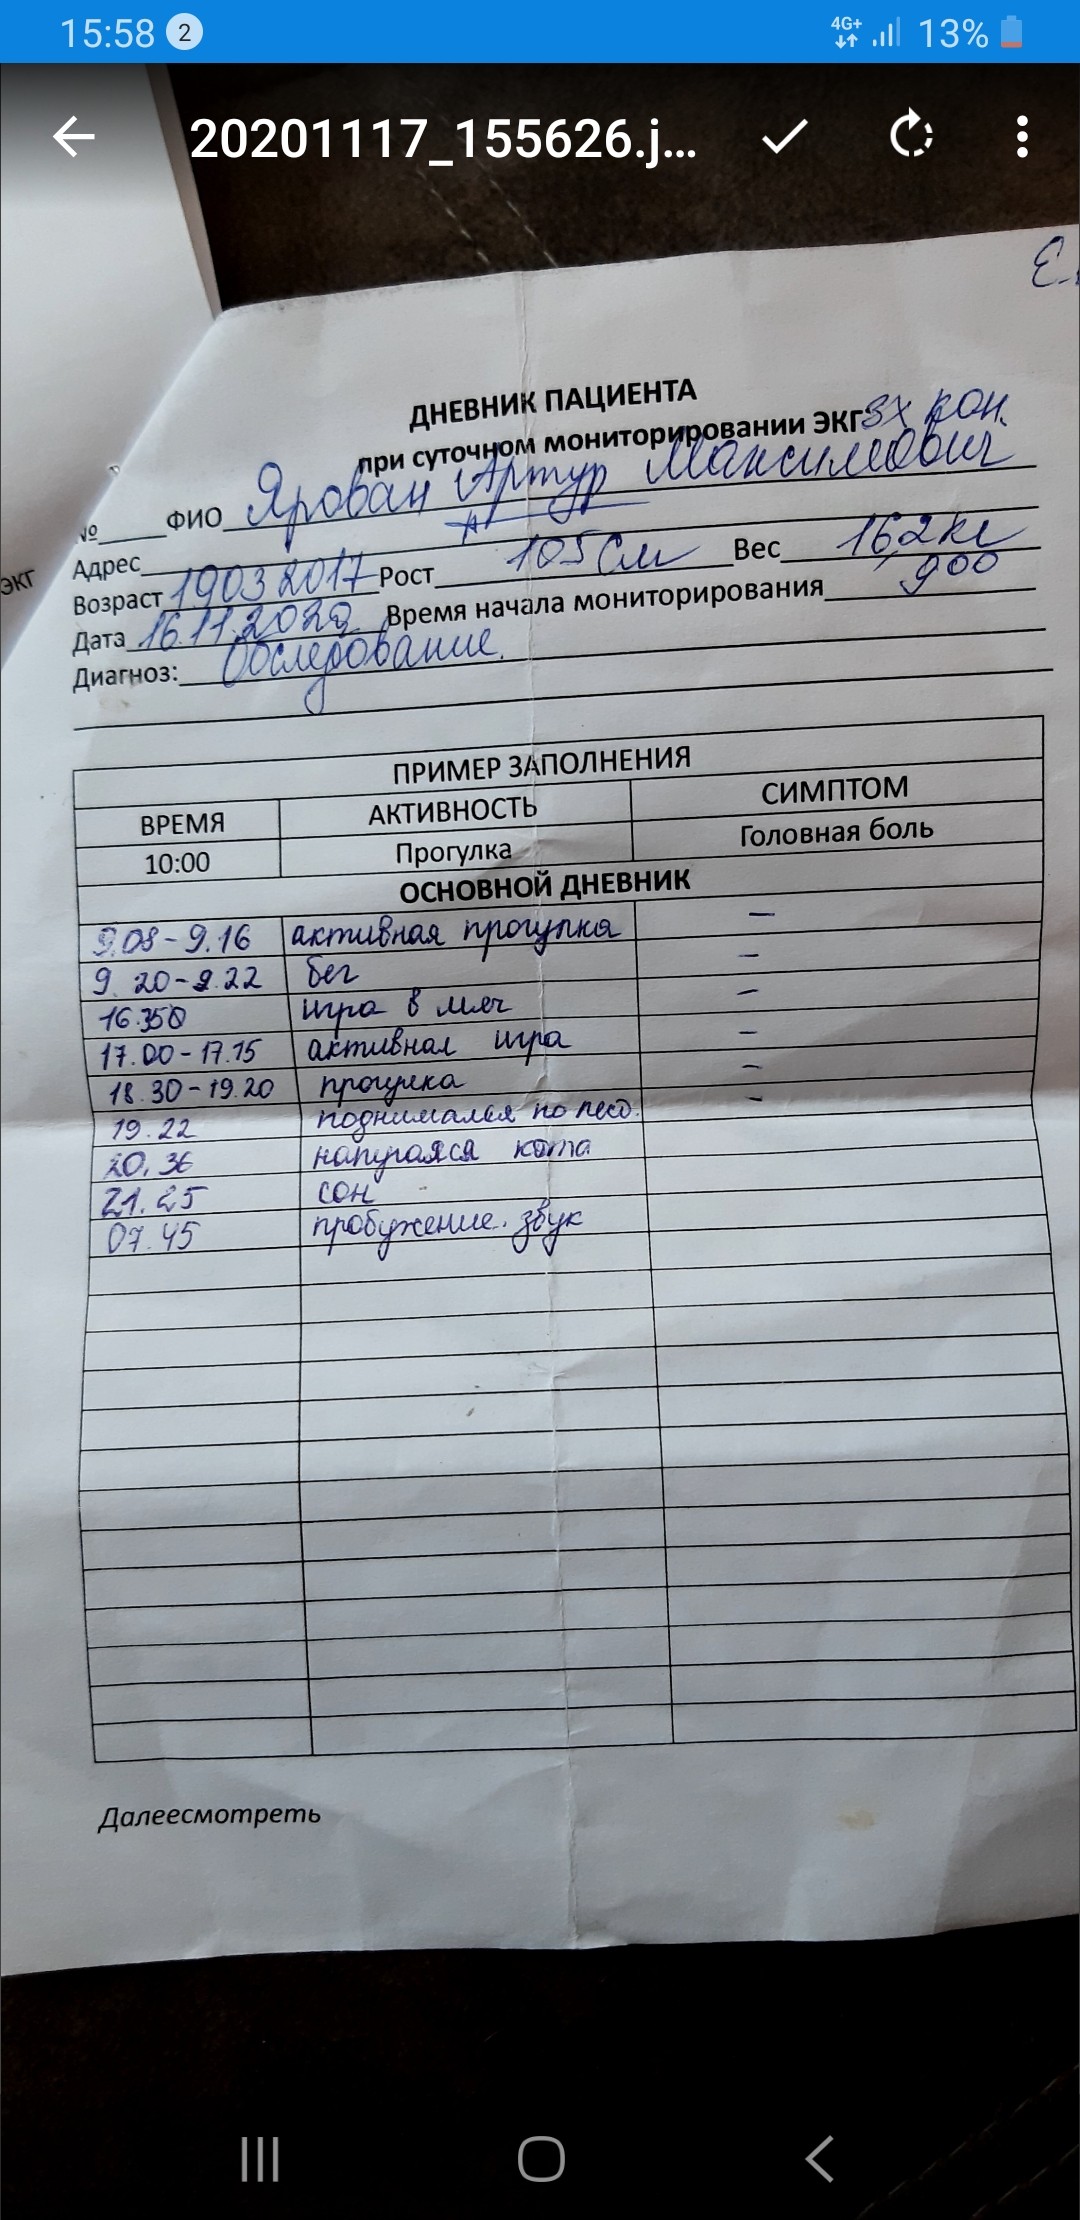 15:58 2 4G+ 13%
20201117_155626.j...
Е.
ДНЕВНИК ПАЦИЕНТА
при суточном мониторировании ЭКГ 3х кан.
№ ФИОЯрован Артур Максимович
ЭКГ
Адрес
Возраст 19 03 2017 Рост 105 см Вес 16,2 кг
Дата 16.11.2020 Время начала мониторирования 9 00
Диагноз: Обследование.
ПРИМЕР ЗАПОЛНЕНИЯ
ВРЕМЯ АКТИВНОСТЬ СИМПТОМ
10:00 Прогулка Головная боль
ОСНОВНОЙ ДНЕВНИК
9.08 - 9.16 активная прогулка –
9. 20 - 9.22 бег –
16.350 игра в мяч –
17.00 - 17.15 активная игра –
18.30 - 19.20 прогулка –
19.22 поднимался по лест. –
20.36 напугался кота
21.25 сон
07.45 пробужение. звук
Далеесмотреть